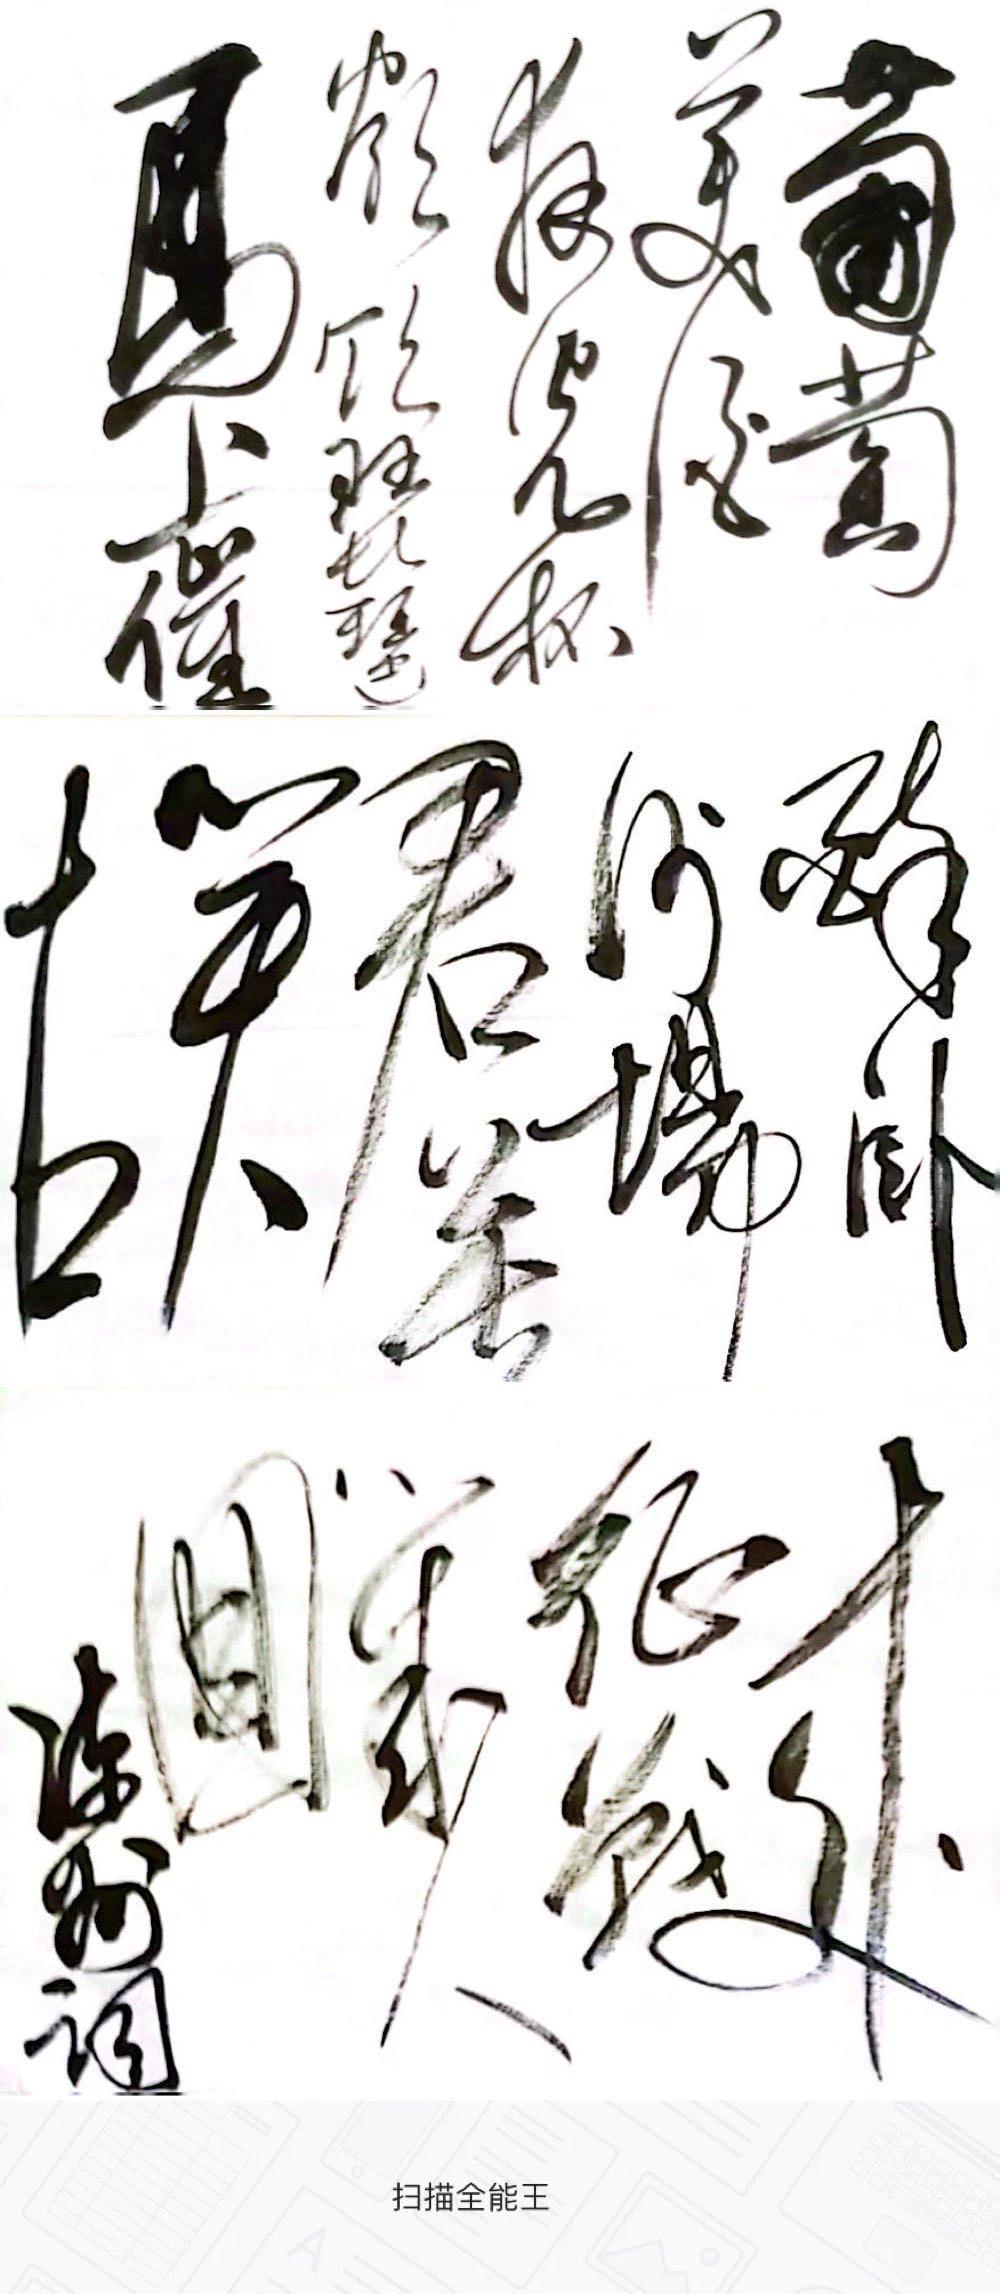 葡萄
美酒
夜光杯
欲飲琵琶
馬上催
醉卧
沙場
君莫
笑
古
来
征戰
幾人
回
凉州詞
扫描全能王